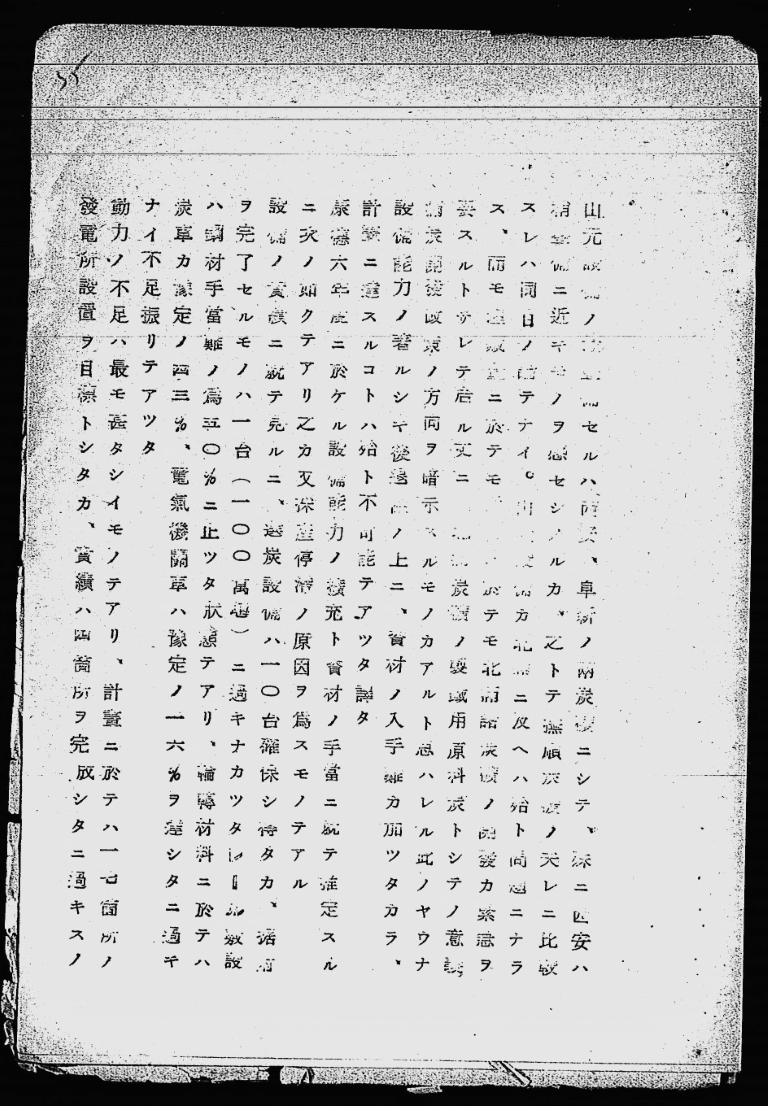 55
山元設備ノ 備セルハ西安、阜新ノ兩炭礦ニシテ、殊ニ西安ハ
備ニ近キモノヲ感セシメルカ、之トテ撫順炭礦ノ夫レニ比較
スレハ同日ノ テナイ。 備カ北 ニ及ヘハ殆ト問題ニナラ
ス、而モ ニ於テモ 於テモ北 諸炭礦ノ開發カ緊急ヲ
要スルトサレテ居ル丈ニ 炭礦ノ製鐵用原料炭トシテノ意義
炭開發政策ノ方向ヲ暗示スルモノカアルト思ハレル此ノヤウナ
設備能力ノ著ルシキ後退 ノ上ニ、資材ノ入手難カ加ツタカラ、
計畫ニ達スルコトハ殆ト不可能テアツタ譯タ
康德六年度ニ於ケル設備能力ノ擴充ト資材ノ手當ニ就テ推定スル
ニ次ノ如クテアリ之カ又採産停滯ノ原因ヲ爲スモノテアル
設備ノ實績ニ就テ見ルニ、選炭設備ハ一〇台確保シ得タカ、据付
ヲ完了セルモノハ一台(一〇〇萬 )ニ過キナカツタレール敷設
ハ鋼材手當難ノ爲五〇%ニ止ツタ狀態テアリ、輪轉材料ニ於テハ
炭車カ豫定ノ四三%、電氣機關車ハ豫定ノ一六%ヲ達シタニ過キ
ナイ不足振リテアツタ
動力ノ不足ハ最モ甚タシイモノテアリ、計畫ニ於テハ一七箇所ノ
發電所設置ヲ目標トシタカ、實績ハ四箇所ヲ完成シタニ過キスノ